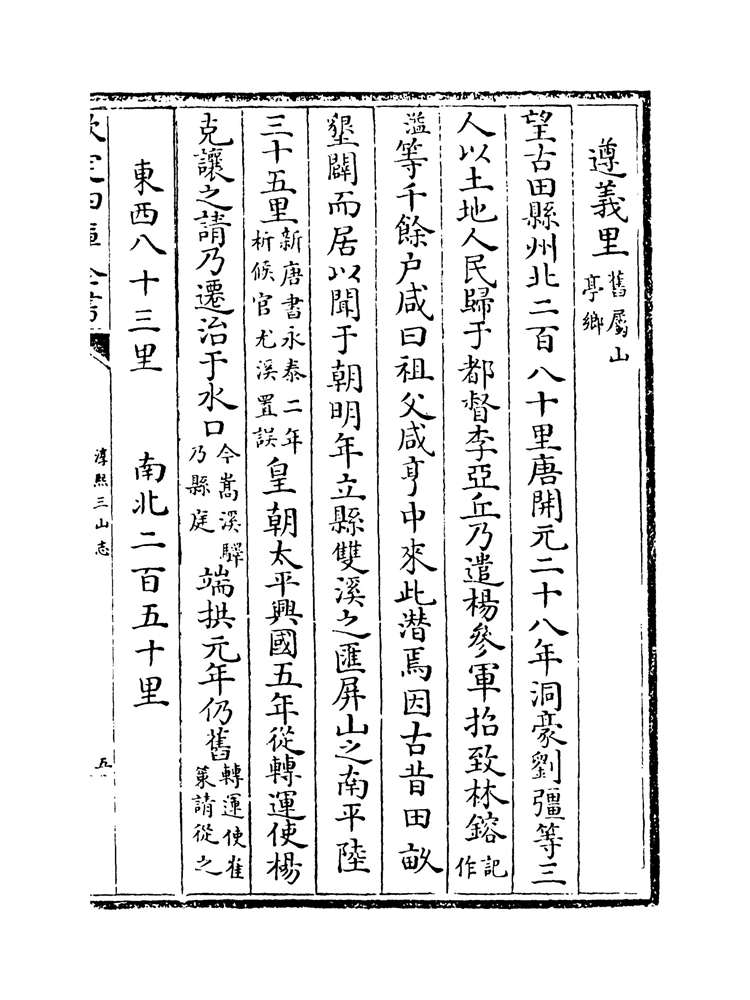 遵義里舊屬山亭鄉
望古田縣州北二百八十里唐開元二十八年洞豪劉彊等三
人以土地人民歸于都督李亞丘乃遣楊參軍招致林鎔記作
溢等千餘户咸曰祖父咸亨中來此潛焉因古昔田畝
墾闢而居以聞于朝明年立縣雙溪之匯屏山之南平陸
三十五里新唐書永泰二年析候官尤溪置誤皇朝太平興國五年從轉運使楊
克讓之請乃遷治于水口今嵩溪驛乃縣庭端拱元年仍舊轉運使崔策請從之
東西八十三里　南北二百五十里
欽定四庫全書
淳熙三山志
五